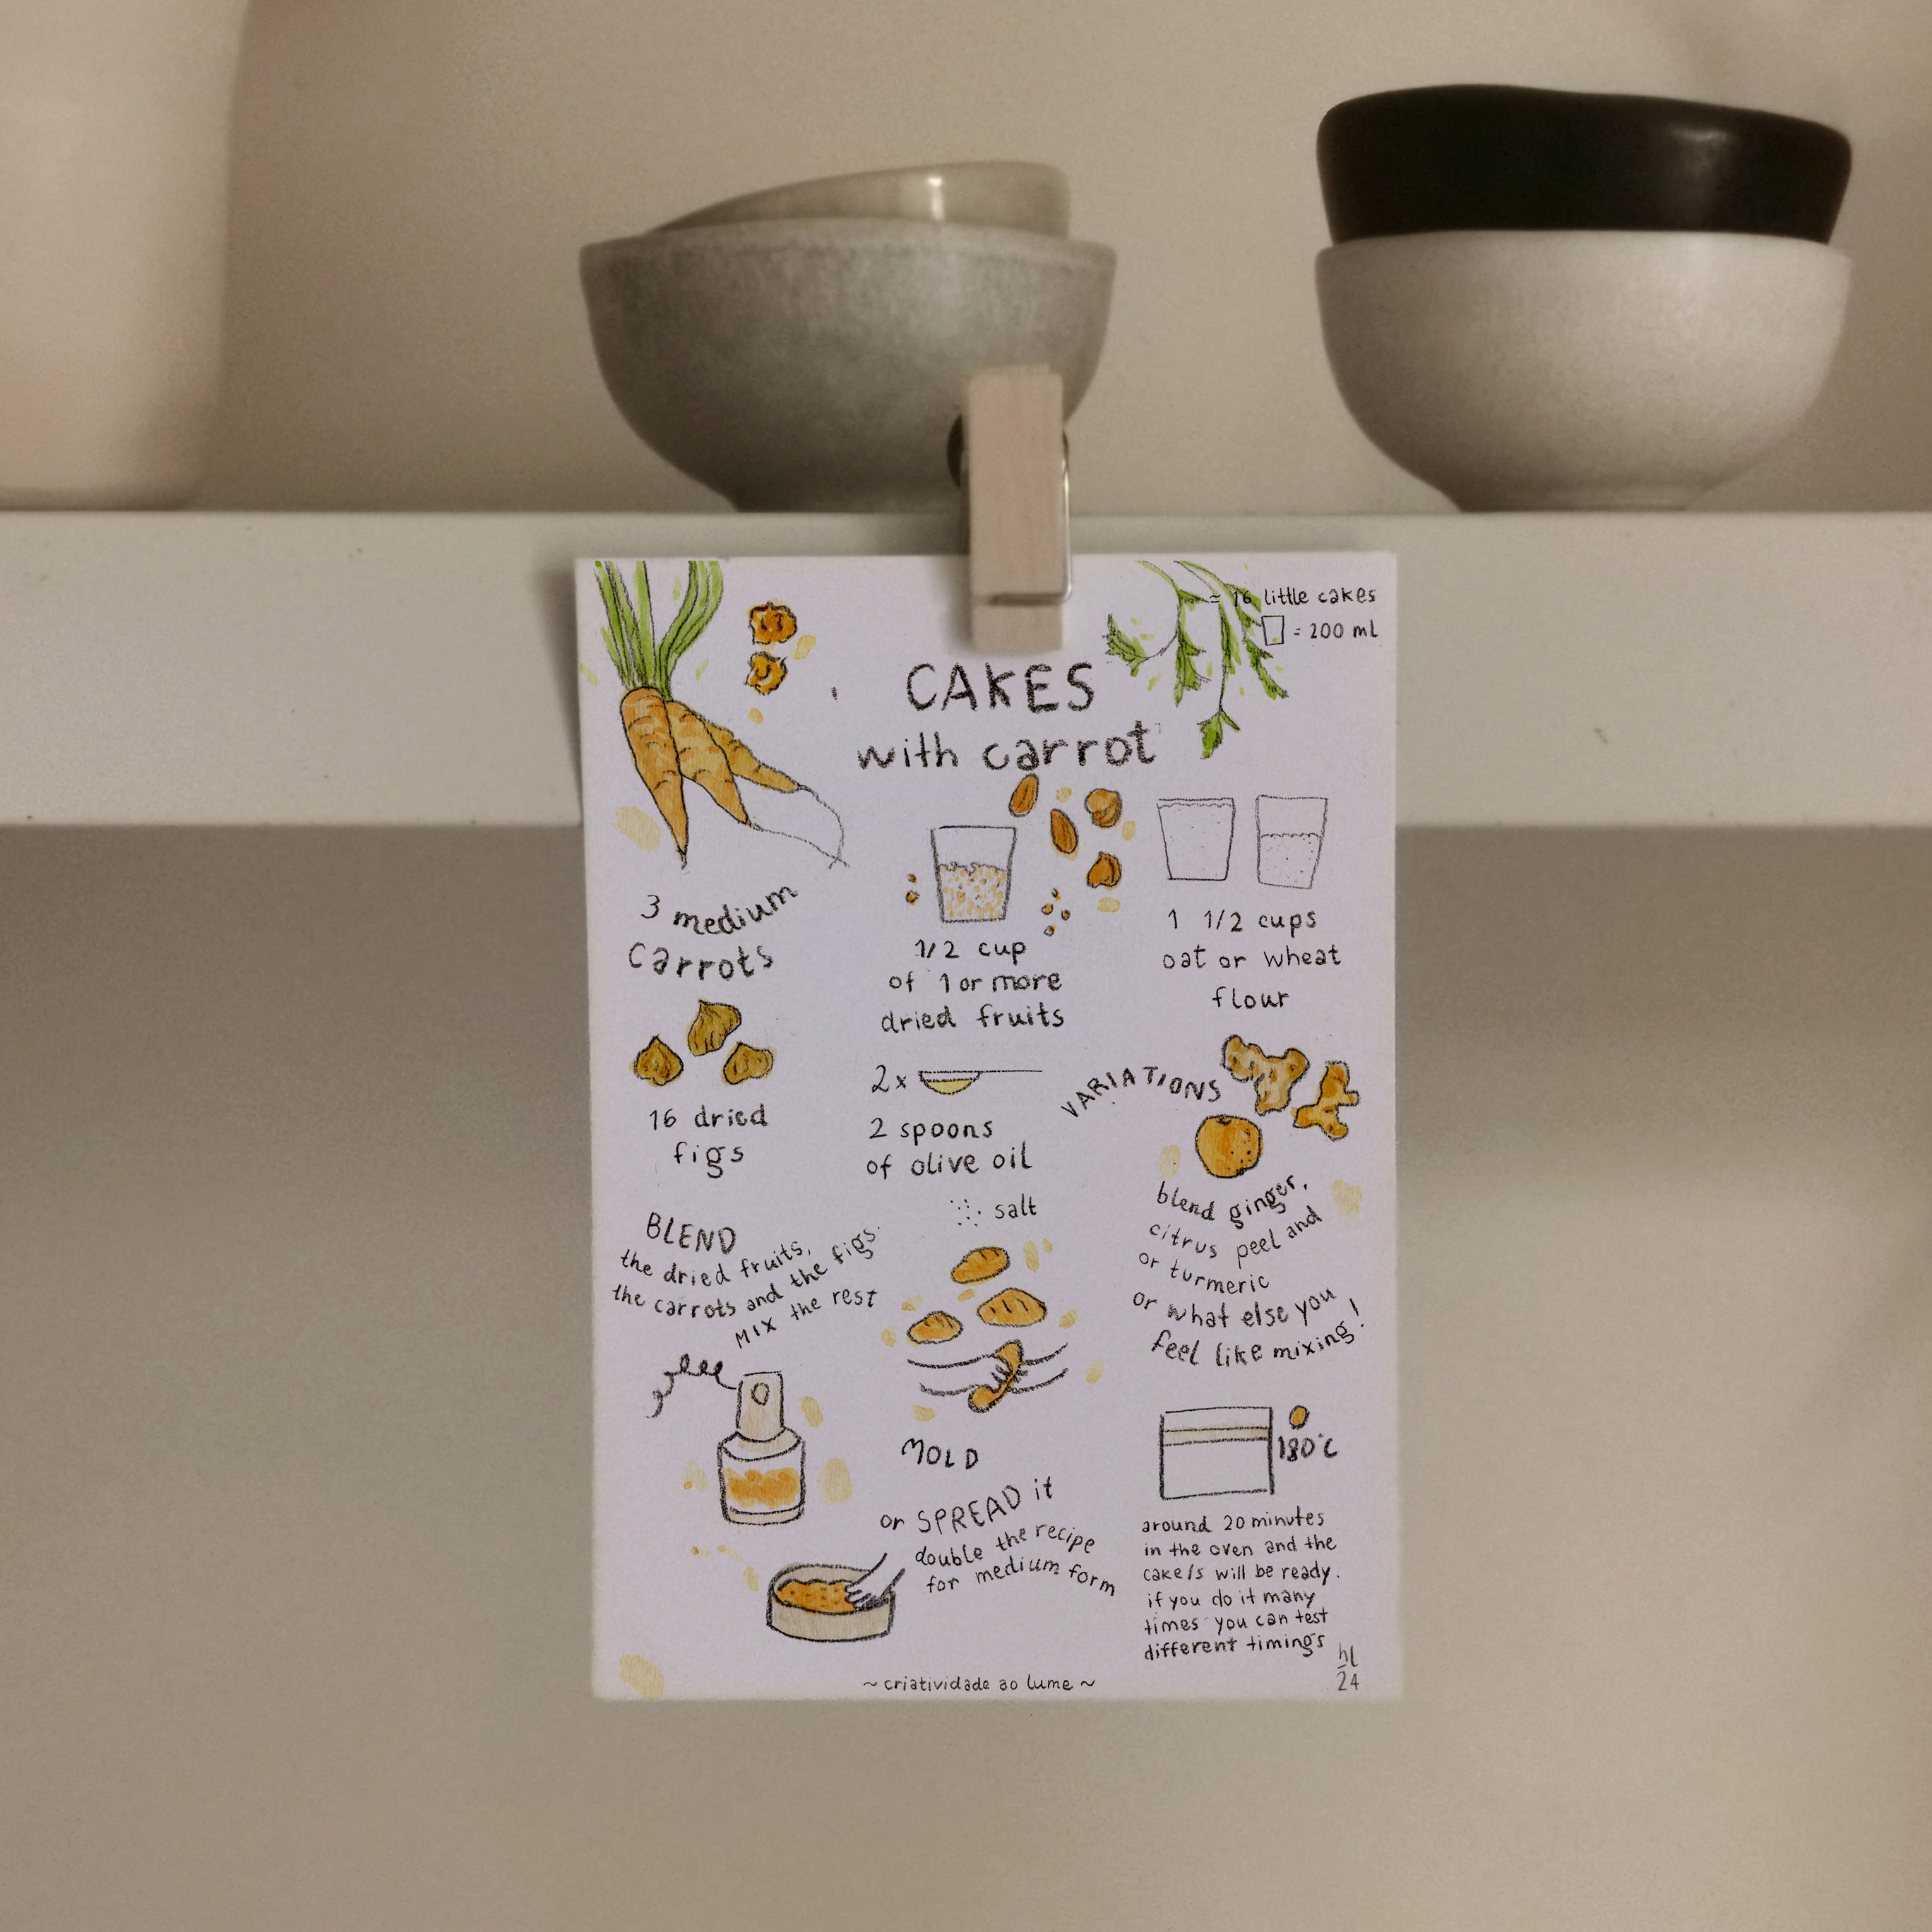 = 16 little cakes
= 200 ml
CAKES
with carrot
3 medium
carrots
1/2 cup
of 1 or more
dried fruits
1 1/2 cups
oat or wheat
flour
16 dried
figs
2x
2 spoons
of olive oil
salt
VARIATIONS
blend ginger,
citrus peel and
or turmeric
or what else you
feel like mixing!
BLEND
the dried fruits,
the carrots and the figs.
MIX the rest
MOLD
or SPREAD it
double the recipe
for medium form
180°C
around 20 minutes
in the oven and the
cake/s will be ready.
if you do it many
times you can test
different timings
hl
24
~ criatividade ao lume ~